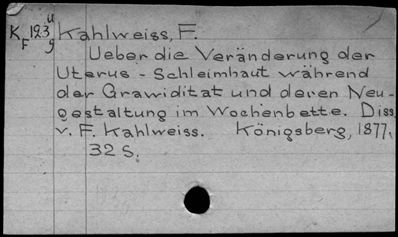 K 123 u Kahlweiss, F.
F g
Ueber die Veränderung der
Uterus-Schleimhaut während
der Grawiditat und deren Neu-
gestaltung im Wochenbette. Diss.
v. F. Kahlweiss. Königsberg, 1877.
32 S.